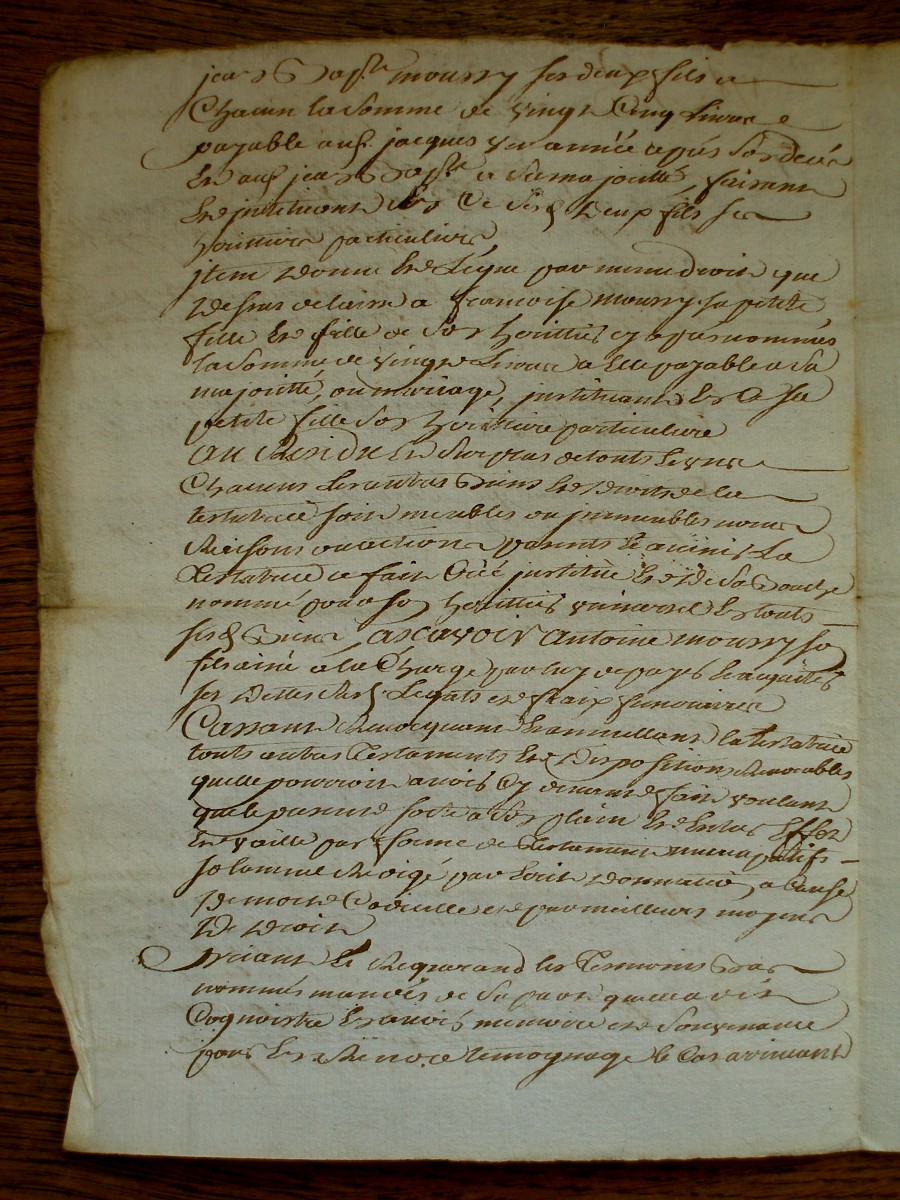 jean Bap.te mourry ses deux fils a
Chacun la Somme de vingt Cinq Livres
payable aud. jacques une année apres Son deces
Et aud jean Bap.te a Sa majorité, faisant
Et instituant Sesd deux fils Ses
heritiers particuliers
jtem donne Et Legue par meme droit que
dessus delaisse a francoise mourry Sa petite
fille Et fille de Son heritier cy apres nommé
la Somme de vingt Livres a Elle payable a Sa
majorité, ou mariage, instituant Sa
petite fille Son heritiere particuliere
Au Residu Et Surplus de touts Et uns
Chacuns les autres Biens Et droits de la
testatrice Soit meubles ou immeubles noms
Raisons ou actions presents Et avenir La
Testatrice a fait Créé institué Et de Sa Bouche
nommé pour Son heritier universel Et touts
sesd Biens ascavoir Antoine mourry Son
fils ainé à la Charge par luy de payer Et acquitter
Ses dettes Legats et fraix funeraires
Cassant Revocquant Et annullant la testatrice
touts autres Testaments Et Dispositions Revocables
quelle pourroit avoir Cy devant fait voulant
que le present Sorte a Son plain Et Entier Effet
Et vaille par forme de Testament nuncupatif
Redigé par Ecrit donnation a Cause
de mort Codicille et par meilleurs moyens
De Droit
priant Et Requerant les Temoins Bas
nommés mandés de Sa part quelle a dit
Cognoistre Et avoir memoire et Souvenance
pour En temognage le Cas avenant